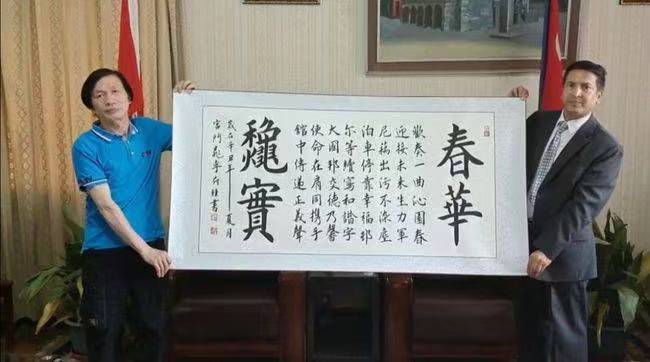 春華
歡奏一曲沁園春
迎接未來生力軍
尼藕出污不染塵
泊車停靠幸福邨
尔等續寫和諧字
大國邦交德乃馨
使命在肩同携手
館中傳遞正義聲
龝實
歲在辛丑年 夏月
書